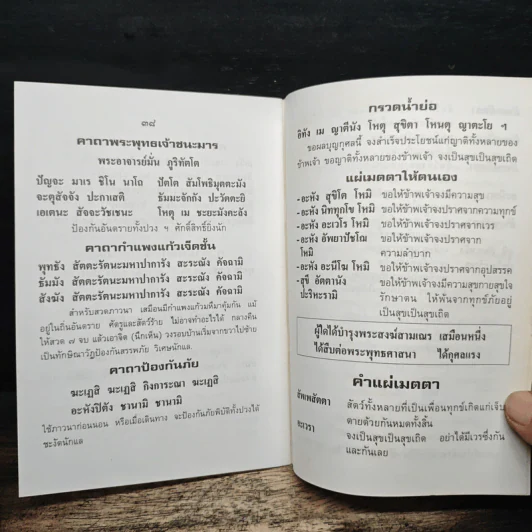 ๓๘
คาถาพระพุทธเจ้าชนะมาร
พระอาจารย์มั่น ภูริทัตโต
ปัญจะ มาเร ชิโน นาโถ ปัตโต สัมโพธิมุตตะมัง
จะตุสัจจัง ปะกาเสติ ธัมมะจักกัง ปะวัตตะยิ
เอเตนะ สัจจะวัชเชนะ โหตุ เม ชะยะมังคะลัง
ป้องกันอันตรายทั้งปวง ฯ ศักดิ์สิทธิ์ยิ่งนัก
คาถากำแพงแก้วเจ็ดชั้น
พุทธัง สัตตะรัตนะมหาปาการัง สะระณัง คัจฉามิ
ธัมมัง สัตตะรัตนะมหาปาการัง สะระณัง คัจฉามิ
สังฆัง สัตตะรัตนะมหาปาการัง สะระณัง คัจฉามิ
สำหรับสวดภาวนา เสมือนมีกำแพงแก้วมาคุ้มกัน แม้
อยู่ในถิ่นอันตราย ศัตรูและสัตว์ร้าย ไม่อาจทำอะไรได้ กลางคืน
ให้สวด ๗ จบ แล้วเอาจิต (นึกเห็น) วงรอบบ้านเริ่มจากขวาไปซ้าย
เป็นทักษิณาวัฏป้องกันสรรพภัย วิเศษนักแล.
คาถาป้องกันภัย
ฆะเฏสิ ฆะเฏสิ กิงการะณา ฆะเฏสิ
อะหังปิตัง ชานามิ ชานามิ
ใช้ภาวนาก่อนนอน หรือเมื่อเดินทาง จะป้องกันภัยพิบัติทั้งปวงได้
ชะงัดนักแล
กรวดน้ำย่อ
อิทัง เม ญาตีนัง โหตุ สุขิตา โหนตุ ญาตะโย ฯ
ขอผลบุญกุศลนี้ จงสำเร็จประโยชน์แก่ญาติทั้งหลายของ
ข้าพเจ้า ขอญาติทั้งหลายของข้าพเจ้า จงเป็นสุขเป็นสุขเถิด
แผ่เมตตาให้ตนเอง
-อะหัง สุขิโต โหมิ ขอให้ข้าพเจ้าจงมีความสุข
-อะหัง นิททุกโข โหมิ ขอให้ข้าพเจ้าจงปราศจากความทุกข์
-อะหัง อะเวโร โหมิ ขอให้ข้าพเจ้าจงปราศจากเวร
-อะหัง อัพยาปัชโฌ ขอให้ข้าพเจ้าจงปราศจาก
โหมิ ความลำบาก
-อะหัง อะนีโฆ โหมิ ขอให้ข้าพเจ้าจงปราศจากอุปสรรค
-สุขี อัตตานัง ขอให้ข้าพเจ้าจงมีความสุขกายสุขใจ
ปะริหะรามิ รักษาตน ให้พ้นจากทุกข์ภัยอยู่
เป็นสุขเป็นสุขเถิด
ผู้ใดได้บำรุงพระสงฆ์สามเณร เสมือนหนึ่ง
ได้สืบต่อพระพุทธศาสนา ได้กุศลแรง
คำแผ่เมตตา
สัพเพสัตตา สัตว์ทั้งหลายที่เป็นเพื่อนทุกข์เกิดแก่เจ็บ
ตายด้วยกันหมดทั้งสิ้น
อะเวรา จงเป็นสุขเป็นสุขเถิด อย่าได้มีเวรซึ่งกัน
และกันเลย